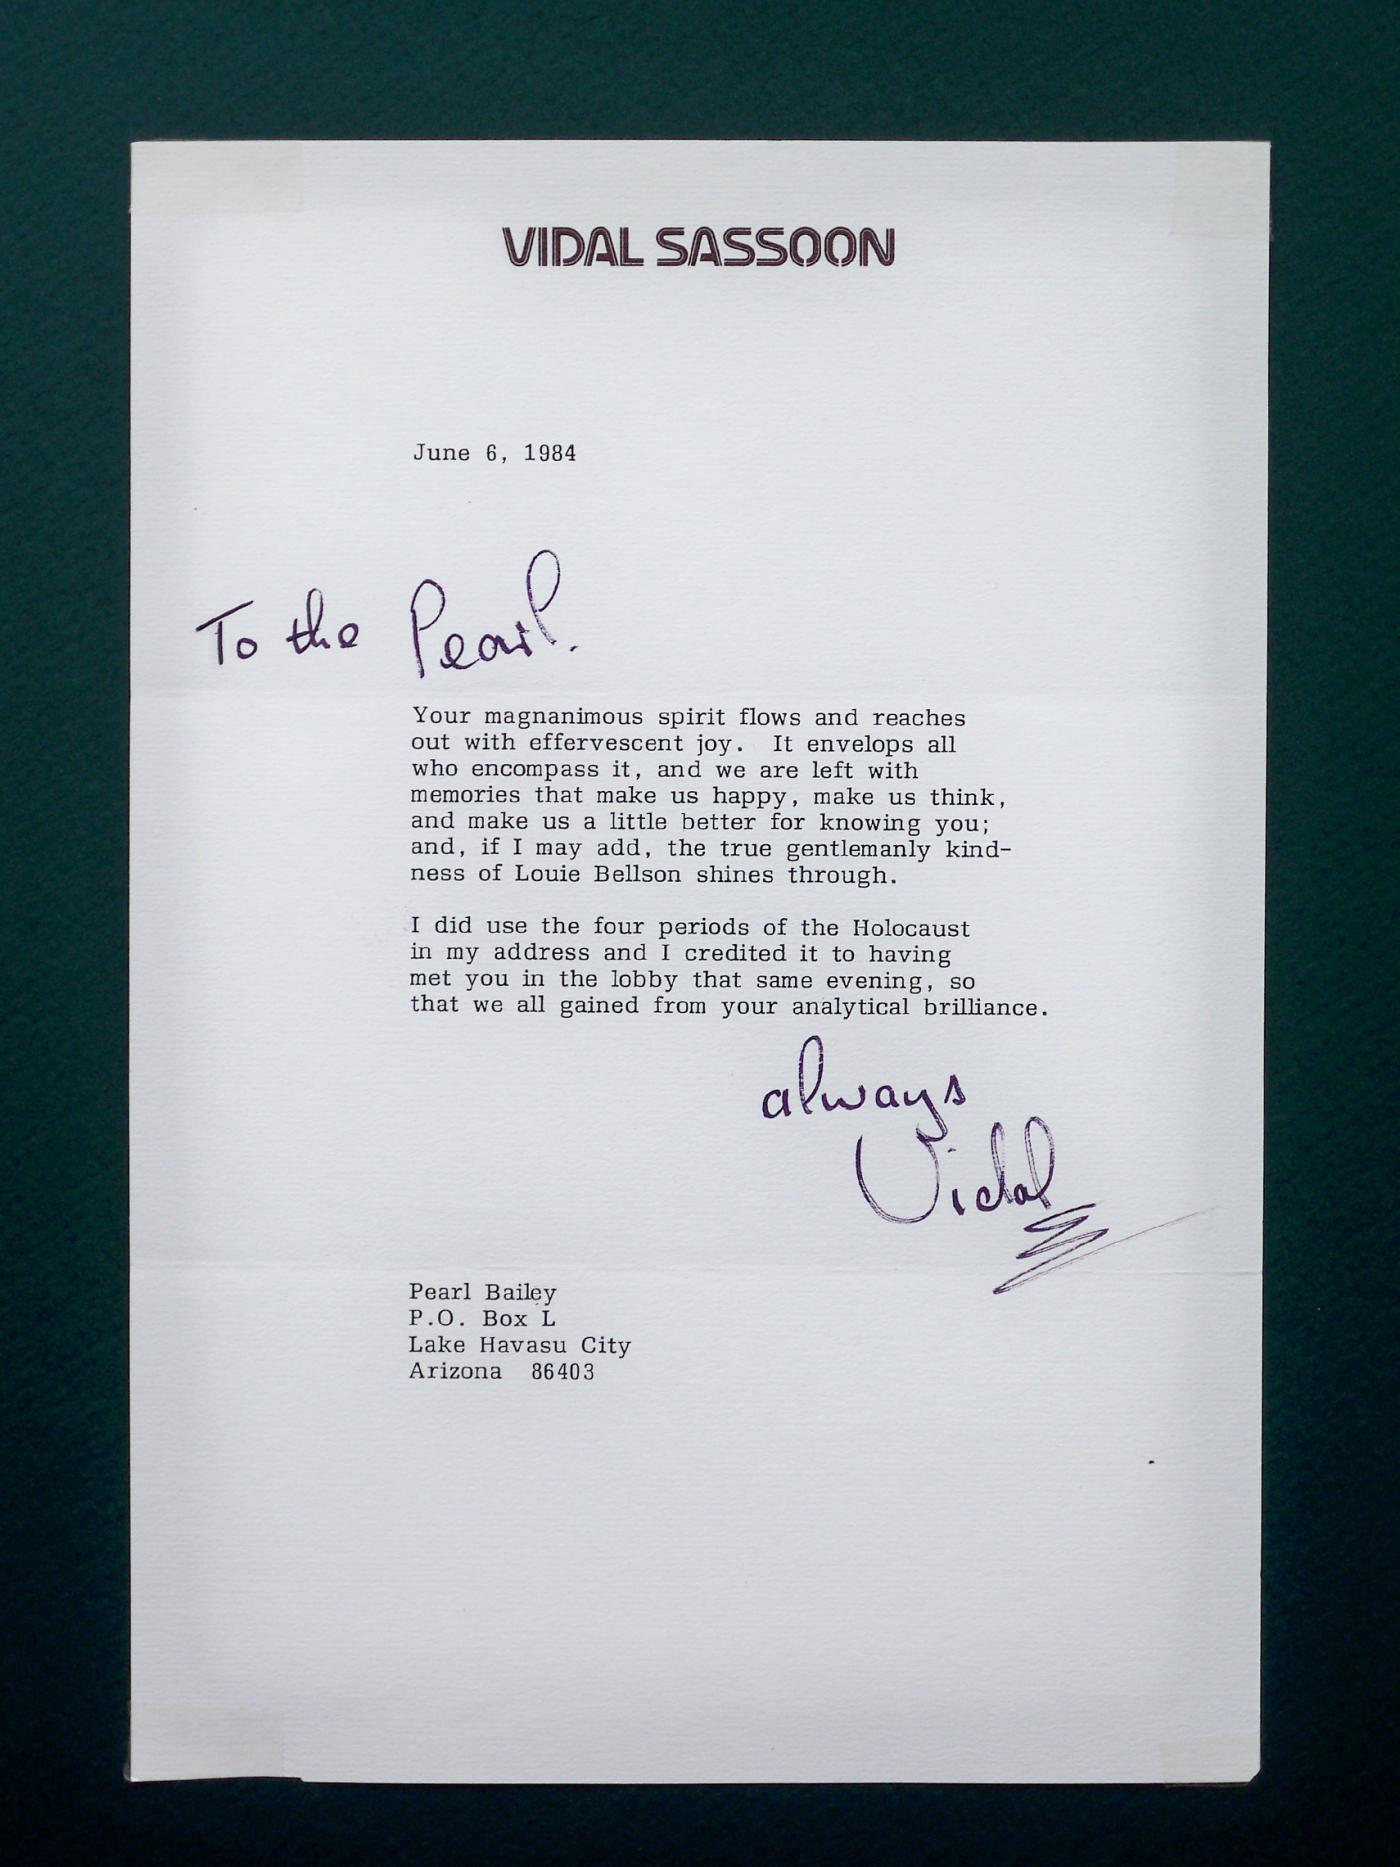 VIDAL SASSOON
June 6, 1984
To the Pearl.
Your magnanimous spirit flows and reaches
out with effervescent joy.  It envelops all
who encompass it, and we are left with
memories that make us happy, make us think,
and make us a little better for knowing you;
and, if I may add, the true gentlemanly kind-
ness of Louie Bellson shines through.
I did use the four periods of the Holocaust
in my address and I credited it to having
met you in the lobby that same evening, so
that we all gained from your analytical brilliance.
always
Vidal
Pearl Bailey
P.O. Box L
Lake Havasu City
Arizona  86403